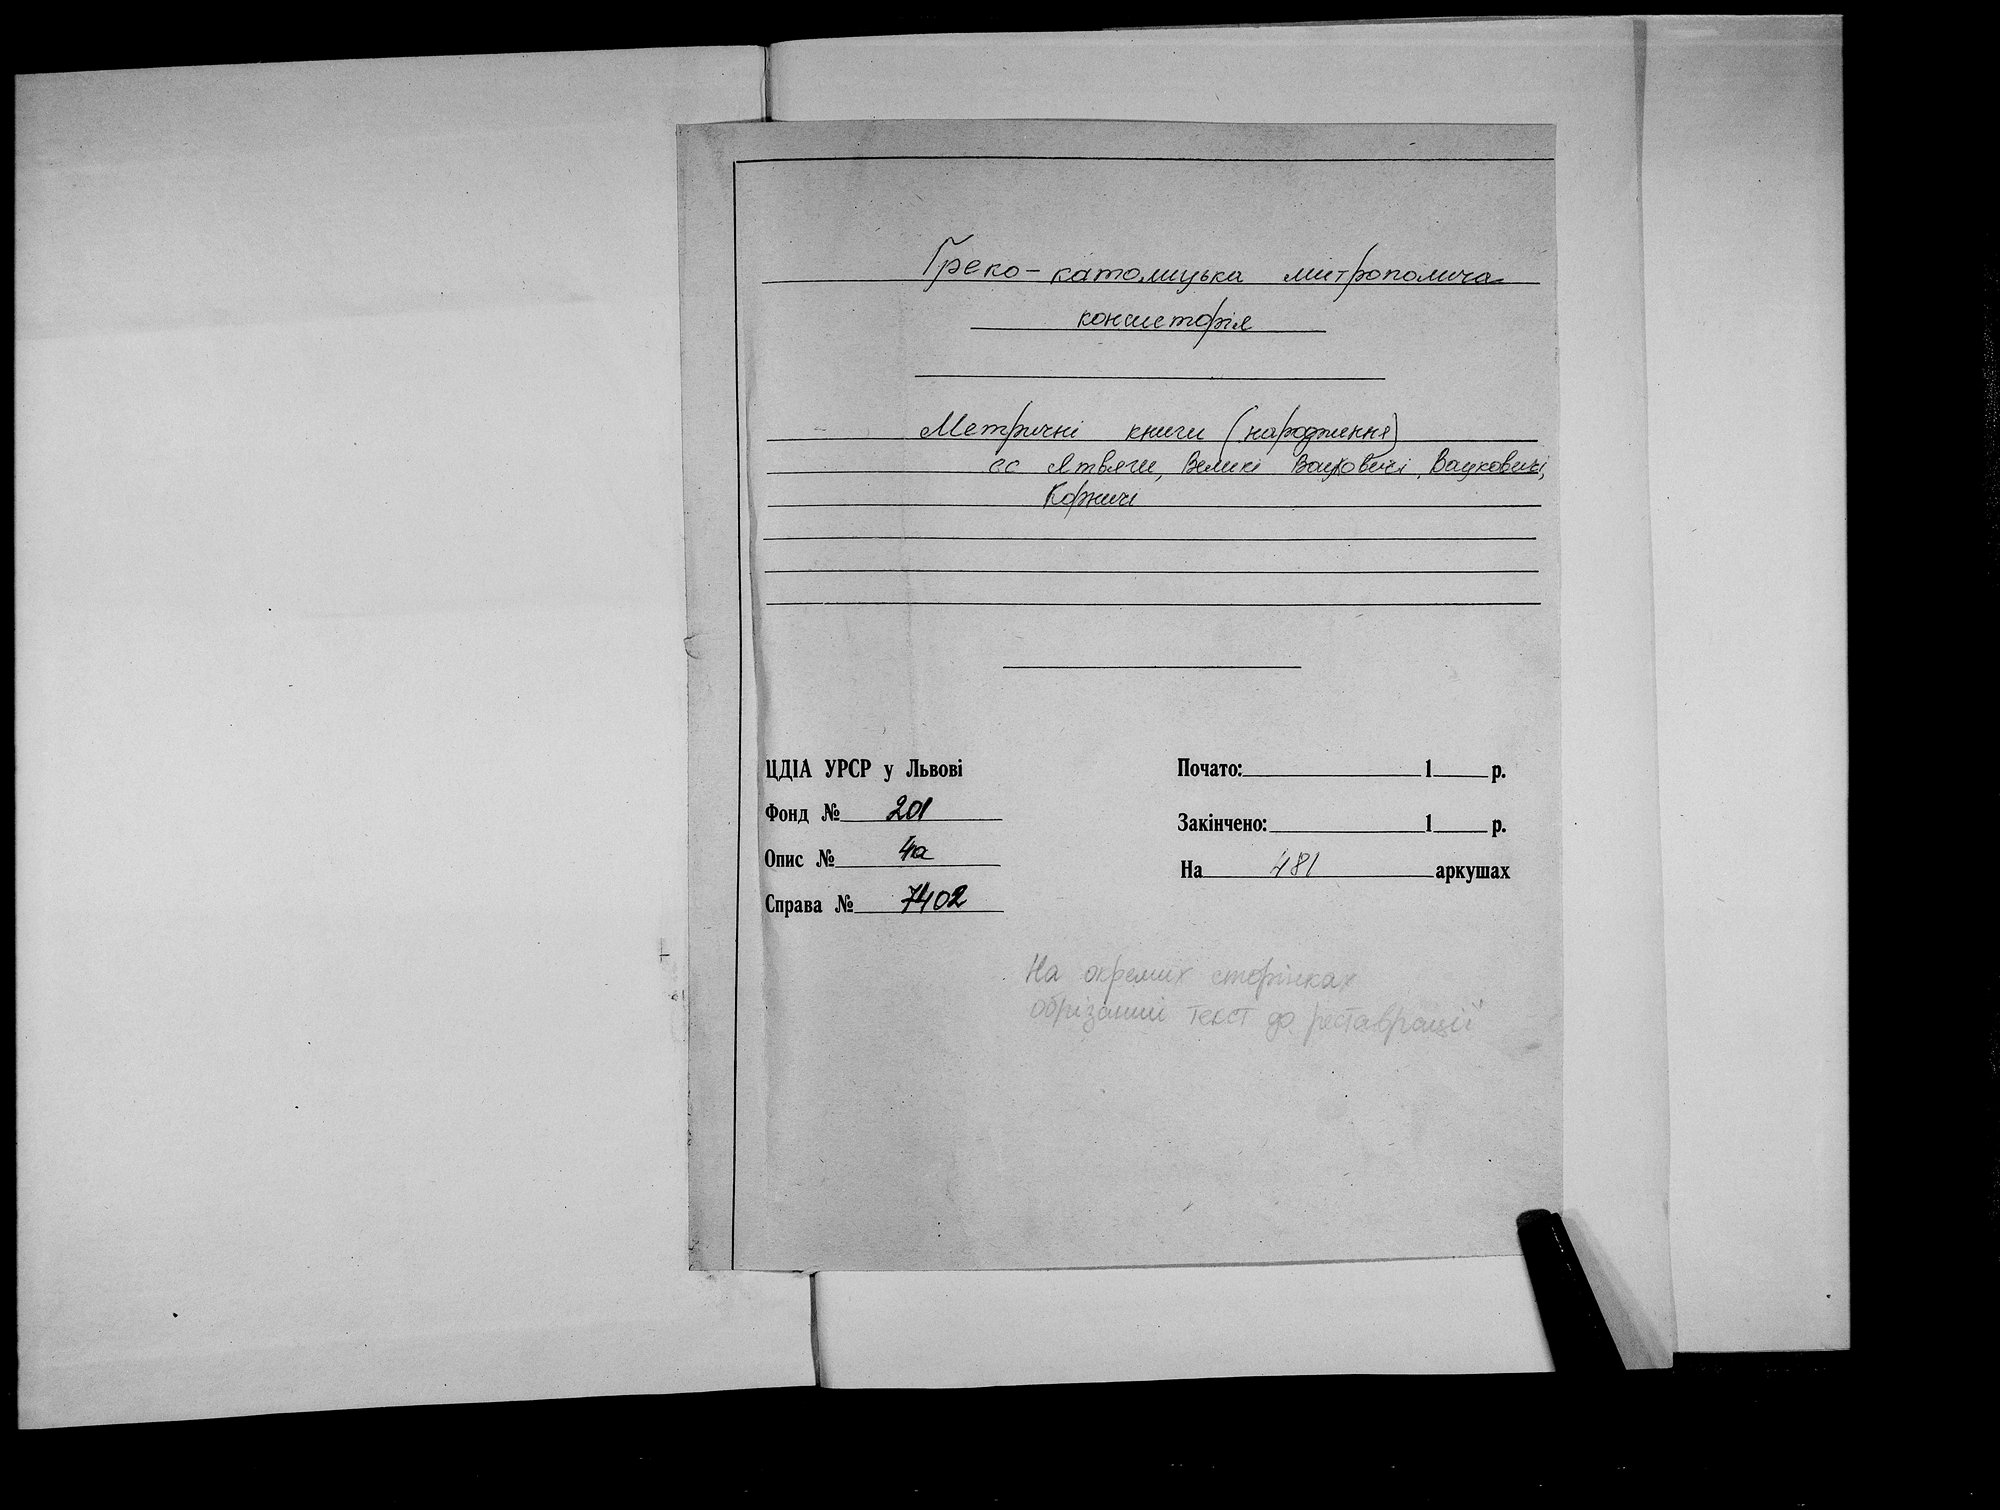 Греко-католицька митрополича
консисторія
Метричні книги (народження)
сс Ятвяги, Великі Вацковичі, Вацковичі,
Коржичі
ЦДІА УРСР у Львові
Фонд № 201
Опис № 4а
Справа № 7402
Почато: 1 р.
Закінчено: 1 р.
На 481 аркушах
На окремих сторінках
обрізаний текст до реставрації